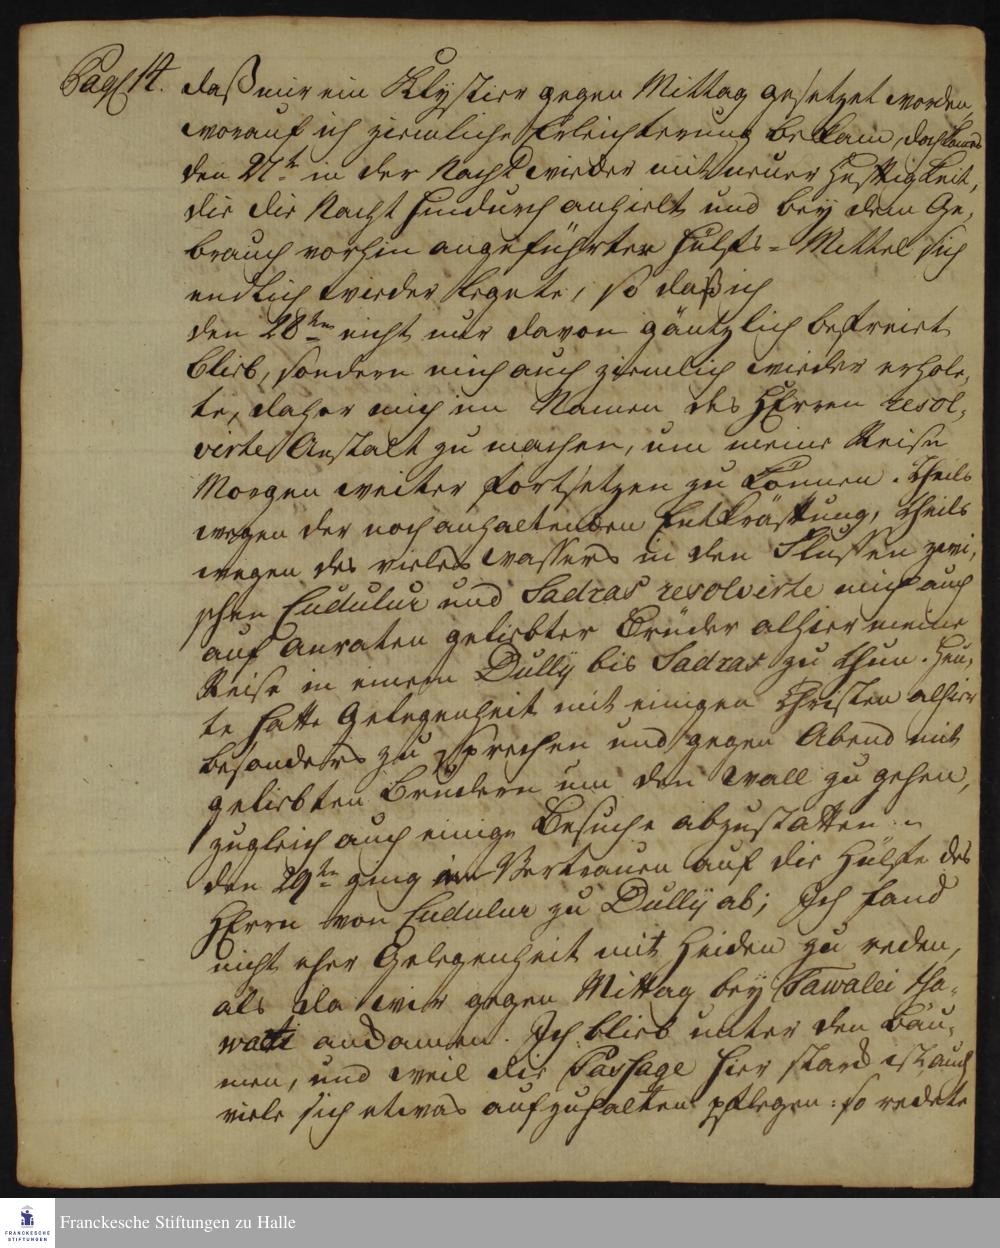 Pag. 14.
daß mir ein Klystier gegen Mittag gesetzet worden,
worauf ich ziemliche Erleichterung bekam, doch kames
den 27.te in der Nacht wieder mit neuer Hefftigkeit,
die die Nacht hindurch anhielt und bey dem Ge,
brauch vorhin angeführter Hülfs-Mittel sich
endlich wieder legete, so daß ich
den 28ten nicht nur davon gäntzlich befreiet
blieb, sondern mich auch ziemlich wieder erhole,
te, daher mich im Namen des HErren resol,
virte Anstalt zu machen, um meine Reise
Morgen weiter fortsetzen zu können. Theils
wegen der noch anhaltenden Entkräfftung, theils
wegen des vieles Wassers in den Flüssen zwi,
schen Cudulur und Sadras resolvirte mich auch
auf Anraten geliebter Brüder alhier meine
Reise in einem Dully bis Sadras zu thun. Heu,
te hatte Gelegenheit mit einigen Christen alhier
besonders zu sprechen und gegen Abend mit
geliebten Brüdern um den Wall zu gehen,
zugleich auch einige Besuche abzustatten.
den 29te ging im Vertrauen auf die Hülfe des
HErrn von Cudulur zu Dully ab; Ich fand
nicht eher Gelegenheit mit Heiden zu reden,
als da wir gegen Mittag bey Tawalei tha,
watti ankamen. Ich blieb unter den Bäu,
men, und weil die Passage hier starck ist, auch
viele sich etwas aufzuhalten pflegen: so redete
Franckesche Stiftungen zu Halle
FRANCKESCHE
STIFTUNGEN